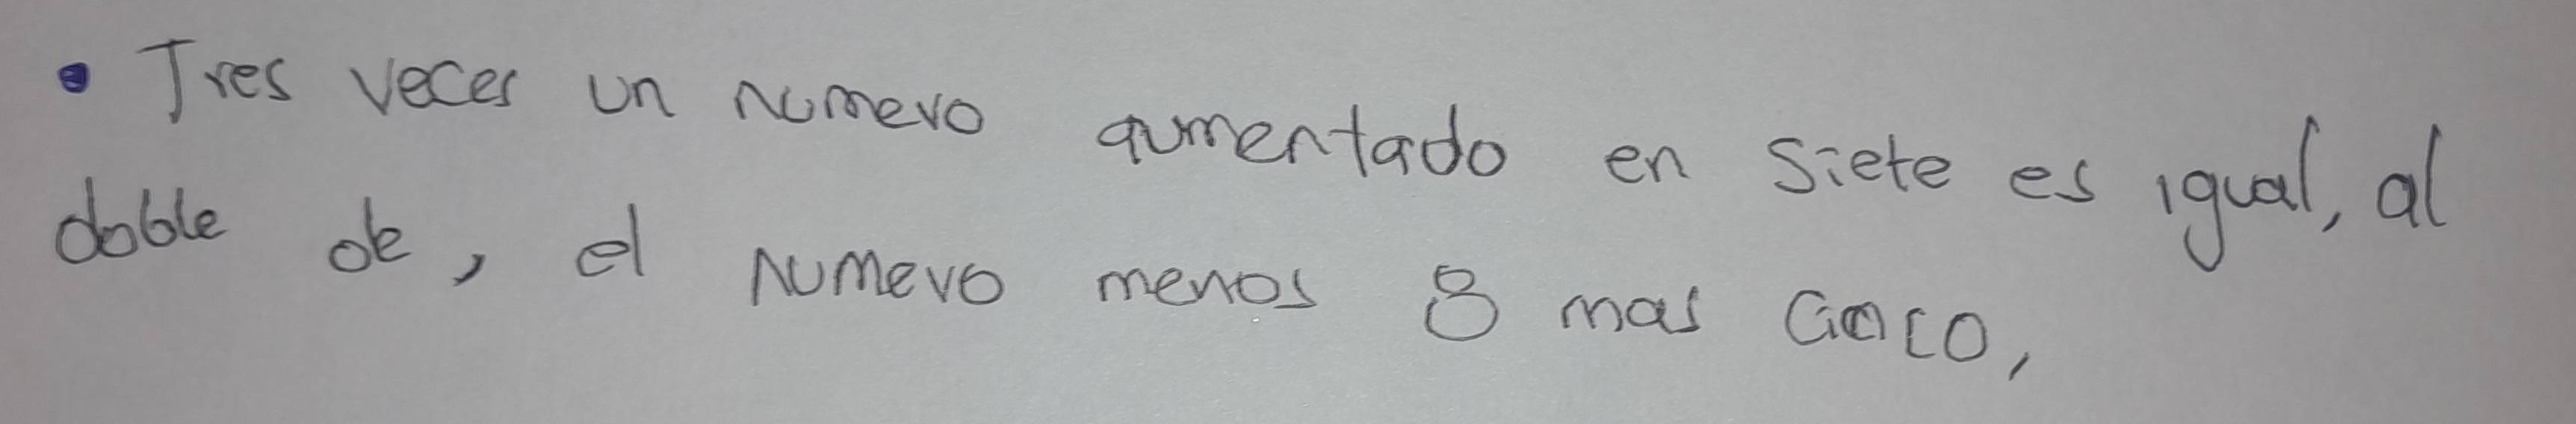 • Tres veces un numero aumentado en siete es igual, al
doble de, el numero menos 8 mas cinco,